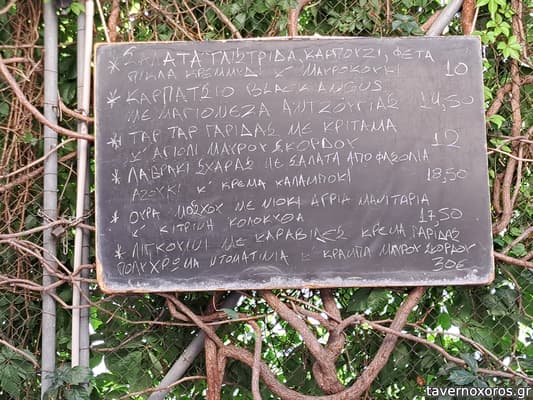 * ΣΑΛΑΤΑ ΓΛΙΣΤΡΙΔΑ, ΚΑΡΠΟΥΖΙ, ΦΕΤΑ
ΠΙΚΛΑ ΚΡΕΜΜΥΔΙ Κ' ΜΑΥΡΟΚΟΥΚΙ 10
* ΚΑΡΠΑΤΣΙΟ BLACK ANGUS
ΜΕ ΜΑΓΙΟΝΕΖΑ ΑΝΤΖΟΥΓΙΑΣ 14,50
* ΤΑΡ ΤΑΡ ΓΑΡΙΔΑΣ ΜΕ ΚΡΙΤΑΜΑ
Κ' ΑΓΙΟΛΙ ΜΑΥΡΟΥ ΣΚΟΡΔΟΥ 12
* ΛΑΒΡΑΚΙ ΣΧΑΡΑΣ ΜΕ ΣΑΛΑΤΑ ΑΠΟ ΦΑΣΟΛΙΑ
ΑΖΟΥΚΙ Κ' ΚΡΕΜΑ ΚΑΛΑΜΠΟΚΙ 18,50
* ΟΥΡΑ ΜΟΣΧΟΥ ΜΕ ΝΙΟΚΙ ΑΓΡΙΑ ΜΑΝΙΤΑΡΙΑ
Κ' ΚΙΤΡΙΝΗ ΚΟΛΟΚΥΘΑ 17,50
* ΛΙΓΚΟΥΙΝΙ ΜΕ ΚΑΡΑΒΙΔΕΣ ΚΡΕΜΑ ΓΑΡΙΔΑΣ
ΠΟΛΥΧΡΩΜΑ ΝΤΟΜΑΤΙΝΙΑ Κ' ΚΡΑΜΠΛ ΜΑΥΡΟΥ ΣΚΟΡΔΟΥ
30€
tavernoxoros.gr